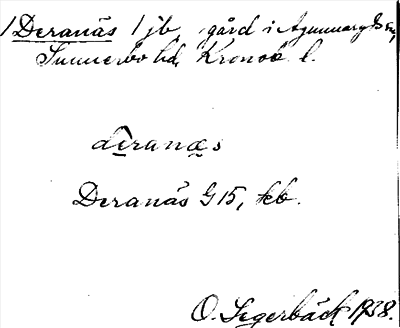 1 Deranäs 1 jb, gård i Agunnaryds sn,
Sunnerbo hd, Kronob. l.
dęranæ̨s
Deranäs G 15, feb.
O. Segerbäck 1938.